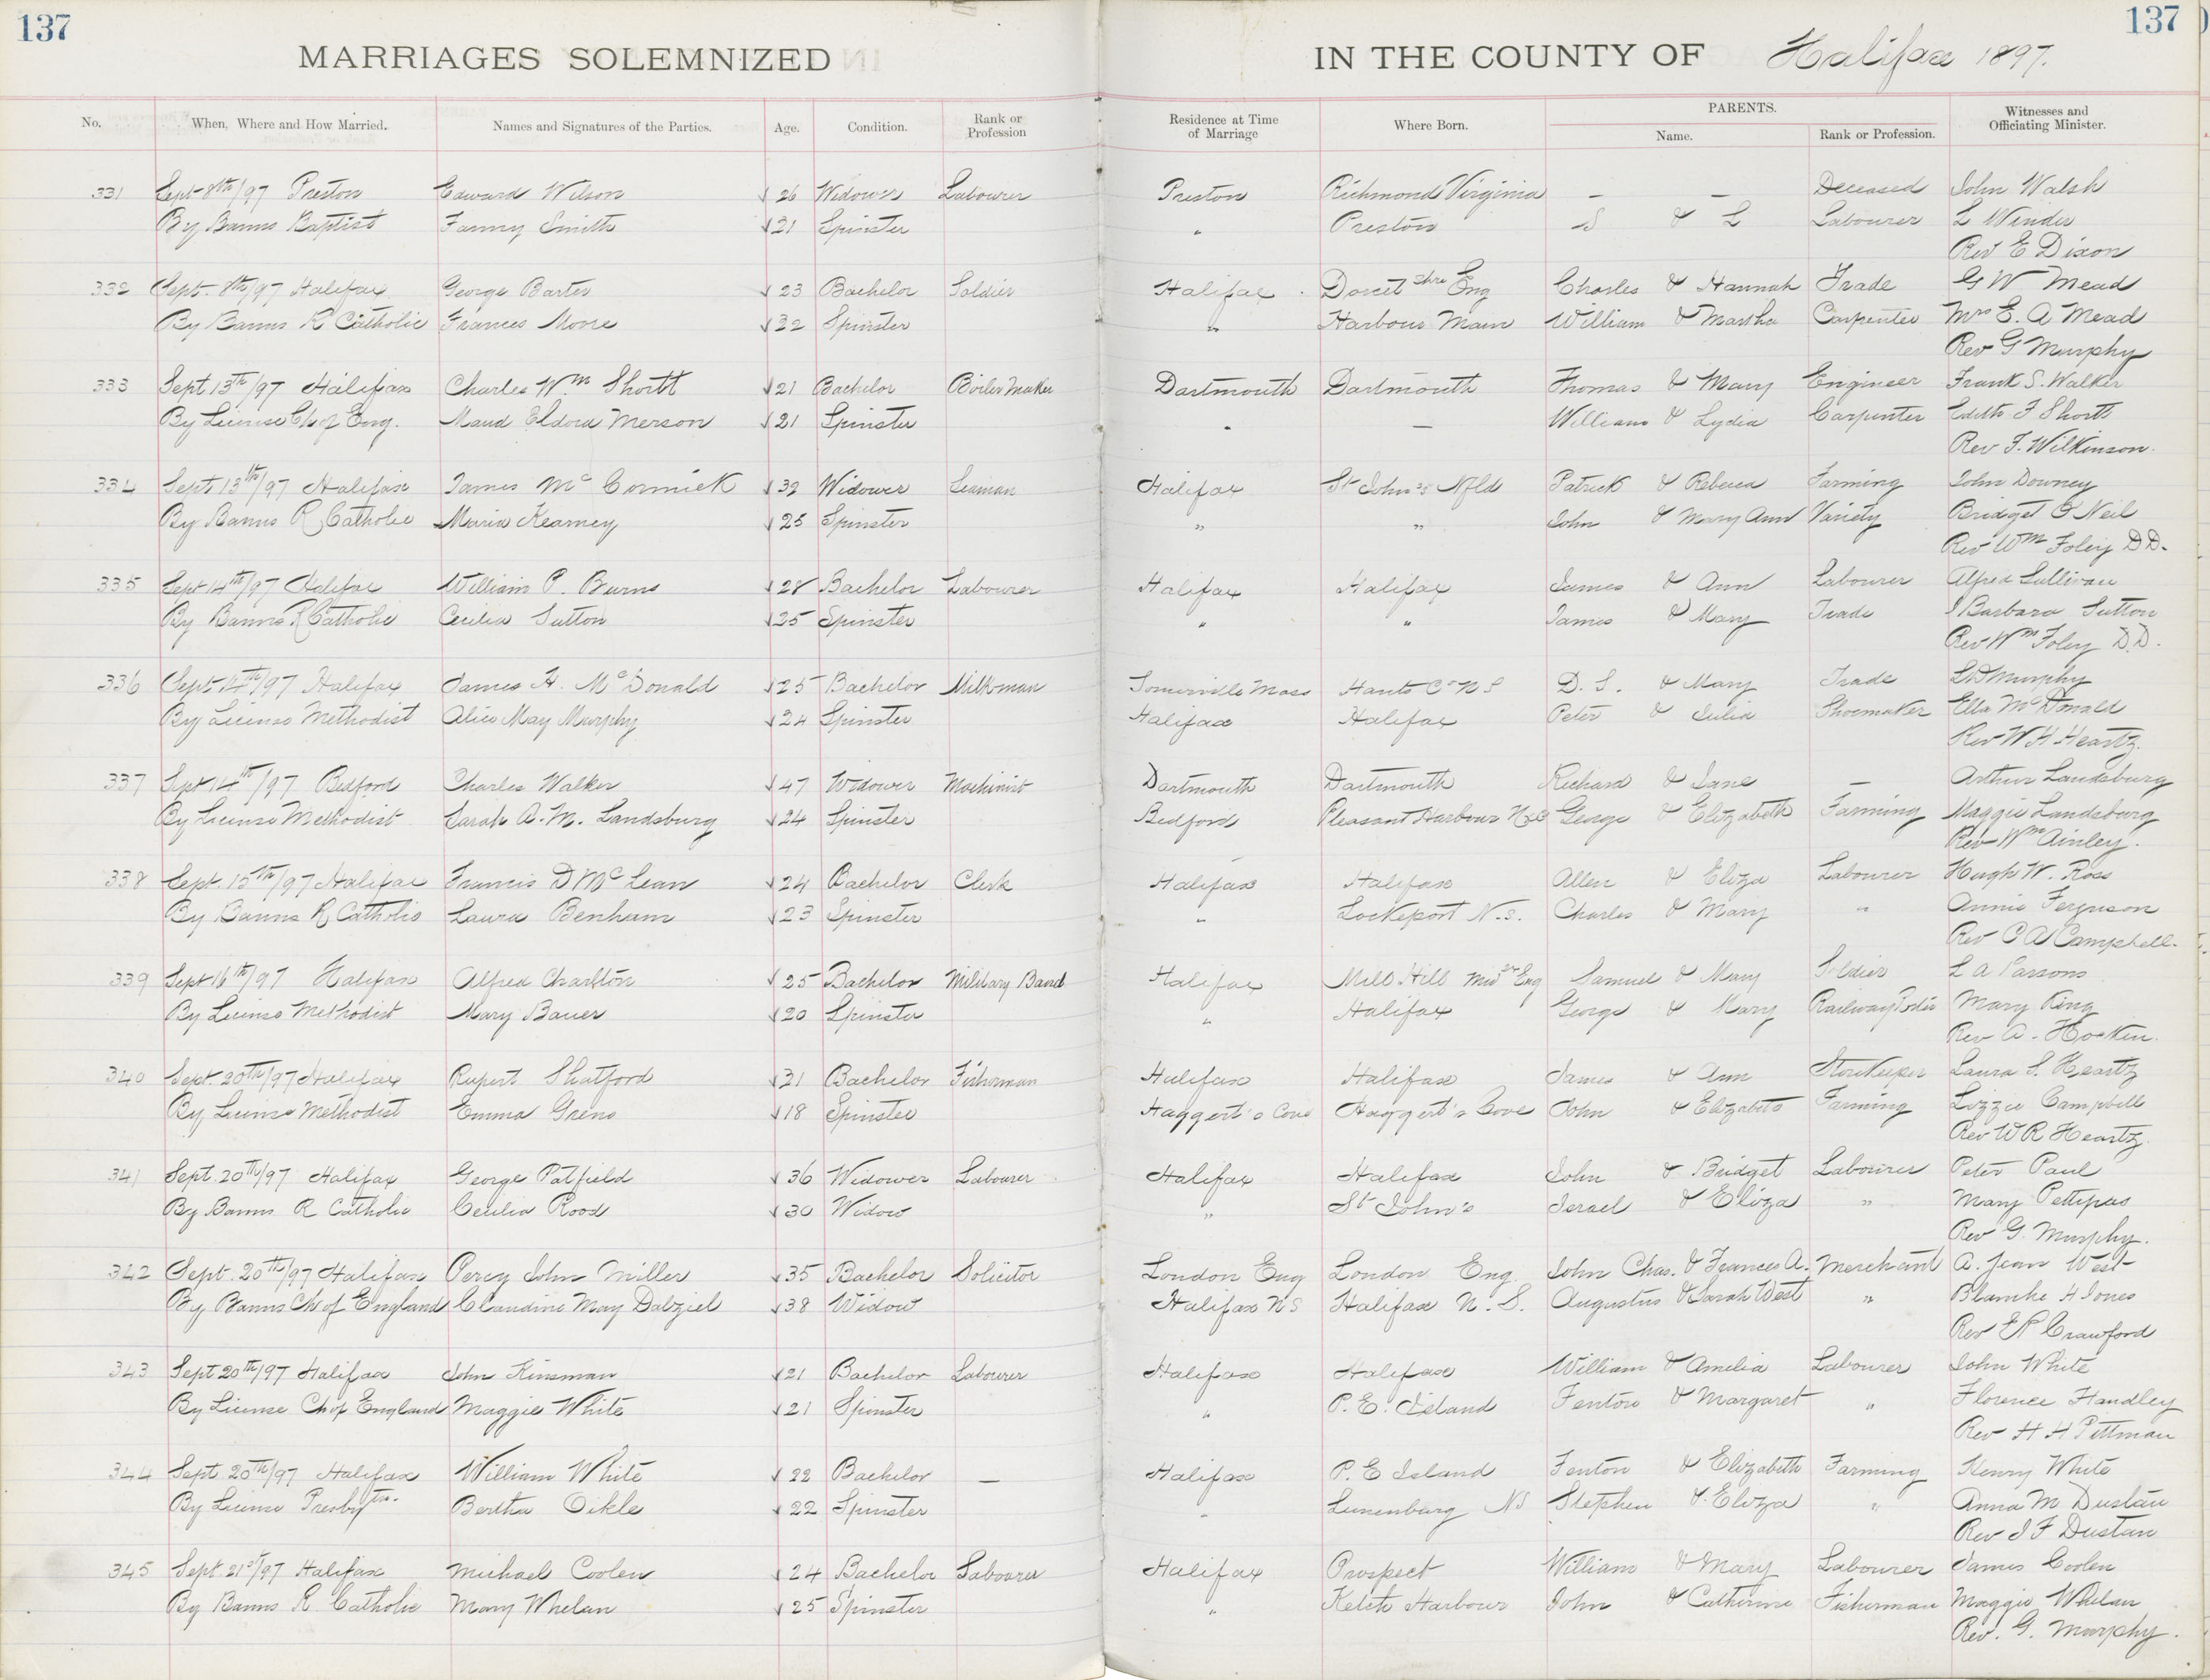 137
137
MARRIAGES SOLEMNIZED IN THE COUNTY OF Halifax 1897.
No. When, Where and How Married. Names and Signatures of the Parties. Age. Condition. Rank or Profession Residence at Time of Marriage Where Born. PARENTS. Name. Rank or Profession. Witnesses and Officiating Minister.
331 Sept 8th/97 Preston Edward Wilson 26 Widower Labourer Preston Richmond Virginia — — Deceased John Walsh
By Banns Baptist Fanny Smith 21 Spinster " Preston S & L Labourer L Winder
Rev E Dixon
332 Sept. 8th/97 Halifax George Bartes 23 Bachelor Soldier Halifax Dorcet Shre Eng Charles & Hannah Trade G W Mead
By Banns R Catholic Frances Moore 32 Spinster " Harbour Main William & Martha Carpenter Mrs E. A Mead
Rev G Murphy
333 Sept 13th/97 Halifax Charles Wm Shortt 21 Bachelor Boiler Maker Dartmouth Dartmouth Thomas & Mary Engineer Frank S. Walker
By License Ch of Eng. Maud Eldora Merson 21 Spinster " — William & Lydia Carpenter Edith F Shortt
Rev F. Wilkinson.
334 Sept 13th/97 Halifax James Mc Cormick 32 Widower Seaman Halifax St John's Nfld Patrick & Rebecca Farming John Downey
By Banns R Catholic Maria Kearney 25 Spinster " " John & Mary Ann Variety Bridget O Neil
Rev Wm Foley D.D.
335 Sept 14th/97 Halifax William P. Burns 28 Bachelor Labourer Halifax Halifax James & Ann Labourer Alfred Sullivan
By Banns R Catholic Cecilia Sutton 25 Spinster " " James & Mary Trade Barbara Sutton
Rev Wm Foley D.D.
336 Sept 14th/97 Halifax James H. McDonald 25 Bachelor Milkman Somerville Mass Hants Co N S D. S. & Mary Trade Murphy
By License Methodist Alice May Murphy 24 Spinster Halifax Halifax Peter & Julia Shoemaker Ella McDonald
Rev W H Heartz.
337 Sept 14th/97 Bedford Charles Walker 47 Widower Machinist Dartmouth Dartmouth Richard & Jane — Arthur Landsburg
By License Methodist Sarah A. M. Landsburg 24 Spinster Bedford Pleasant Harbour George & Elizabeth Farming Maggie Landsburg
Rev Wm Ainley.
338 Sept. 15th/97 Halifax Francis D McLean 24 Bachelor Clerk Halifax Halifax Allen & Eliza Labourer Hugh W. Ross
By Banns R Catholic Laura Benham 23 Spinster " Lockeport N.S. Charles & Mary " Annie Ferguson
Rev C A Campbell.
339 Sept 16th/97 Halifax Alfred Charlton 25 Bachelor Military Band Halifax Mill Hill Eng Samuel & Mary Soldier L A Parsons
By License Methodist Mary Bauer 20 Spinster " Halifax George & Mary Railway Porter Mary King
Rev A. Hockin.
340 Sept. 20th/97 Halifax Rupert Shatford 31 Bachelor Fisherman Halifax Halifax James & Ann Storekeeper Laura S. Heartz
By License Methodist Emma Greno 18 Spinster Haggert's Cove Haggert's Cove John & Elizabeth Farming Lizzie Campbell
Rev W R Heartz.
341 Sept. 20th/97 Halifax George Patfield 36 Widower Labourer Halifax Halifax John & Bridget Labourer Peter Paul
By Banns R Catholic Cecilia Rood 30 Widow " St John's Israel & Eliza " Mary Pettipas
Rev G. Murphy.
342 Sept. 20th/97 Halifax Percy John Miller 35 Bachelor Solicitor London Eng London Eng John Chas. & Frances A. Merchant A. Jean West
By Banns Ch of England Claudine May Dalziel 38 Widow Halifax N S Halifax N.S. Augustus & Sarah West " Blanche H Jones
Rev E P Crawford
343 Sept 20th/97 Halifax John Kinsman 21 Bachelor Labourer Halifax Halifax William & Amelia Labourer John White
By License Ch of England Maggie White 21 Spinster " P. E. Island Fenton & Margaret " Florence Handley
Rev H H Pittman
344 Sept 20th/97 Halifax William White 22 Bachelor — Halifax P. E Island Fenton & Elizabeth Farming Henry White
By License Presbytn. Bertha Oikle 22 Spinster " Lunenburg NS Stephen & Eliza " Anna M Dustan
Rev J F Dustan
345 Sept. 21st/97 Halifax Michael Coolen 24 Bachelor Labourer Halifax Prospect William & Mary Labourer James Coolen
By Banns R. Catholic Mary Whelan 25 Spinster " Ketch Harbour John & Catherine Fisherman Maggie Whelan
Rev. G. Murphy.